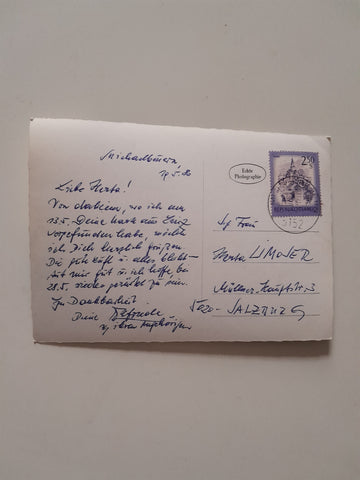 Michaelbeuern,
Liebe Herta!
Von daheim, wo ich am
13.5. Deine Karte aus Linz
vorgefunden habe, möchte
ich Dich herzlich grüßen.
Die gute Luft u. alles
tut mir gut u. ich hoffe, bis
28.5. wieder zu sein.
In Dankbarkeit
Deine
Echte
Photographie
2.50
REPUBLIK ÖSTERREICH
5152
Frau
Herta LIMOSER
Müllner-Hauptstr.
5020 - SALZBURG